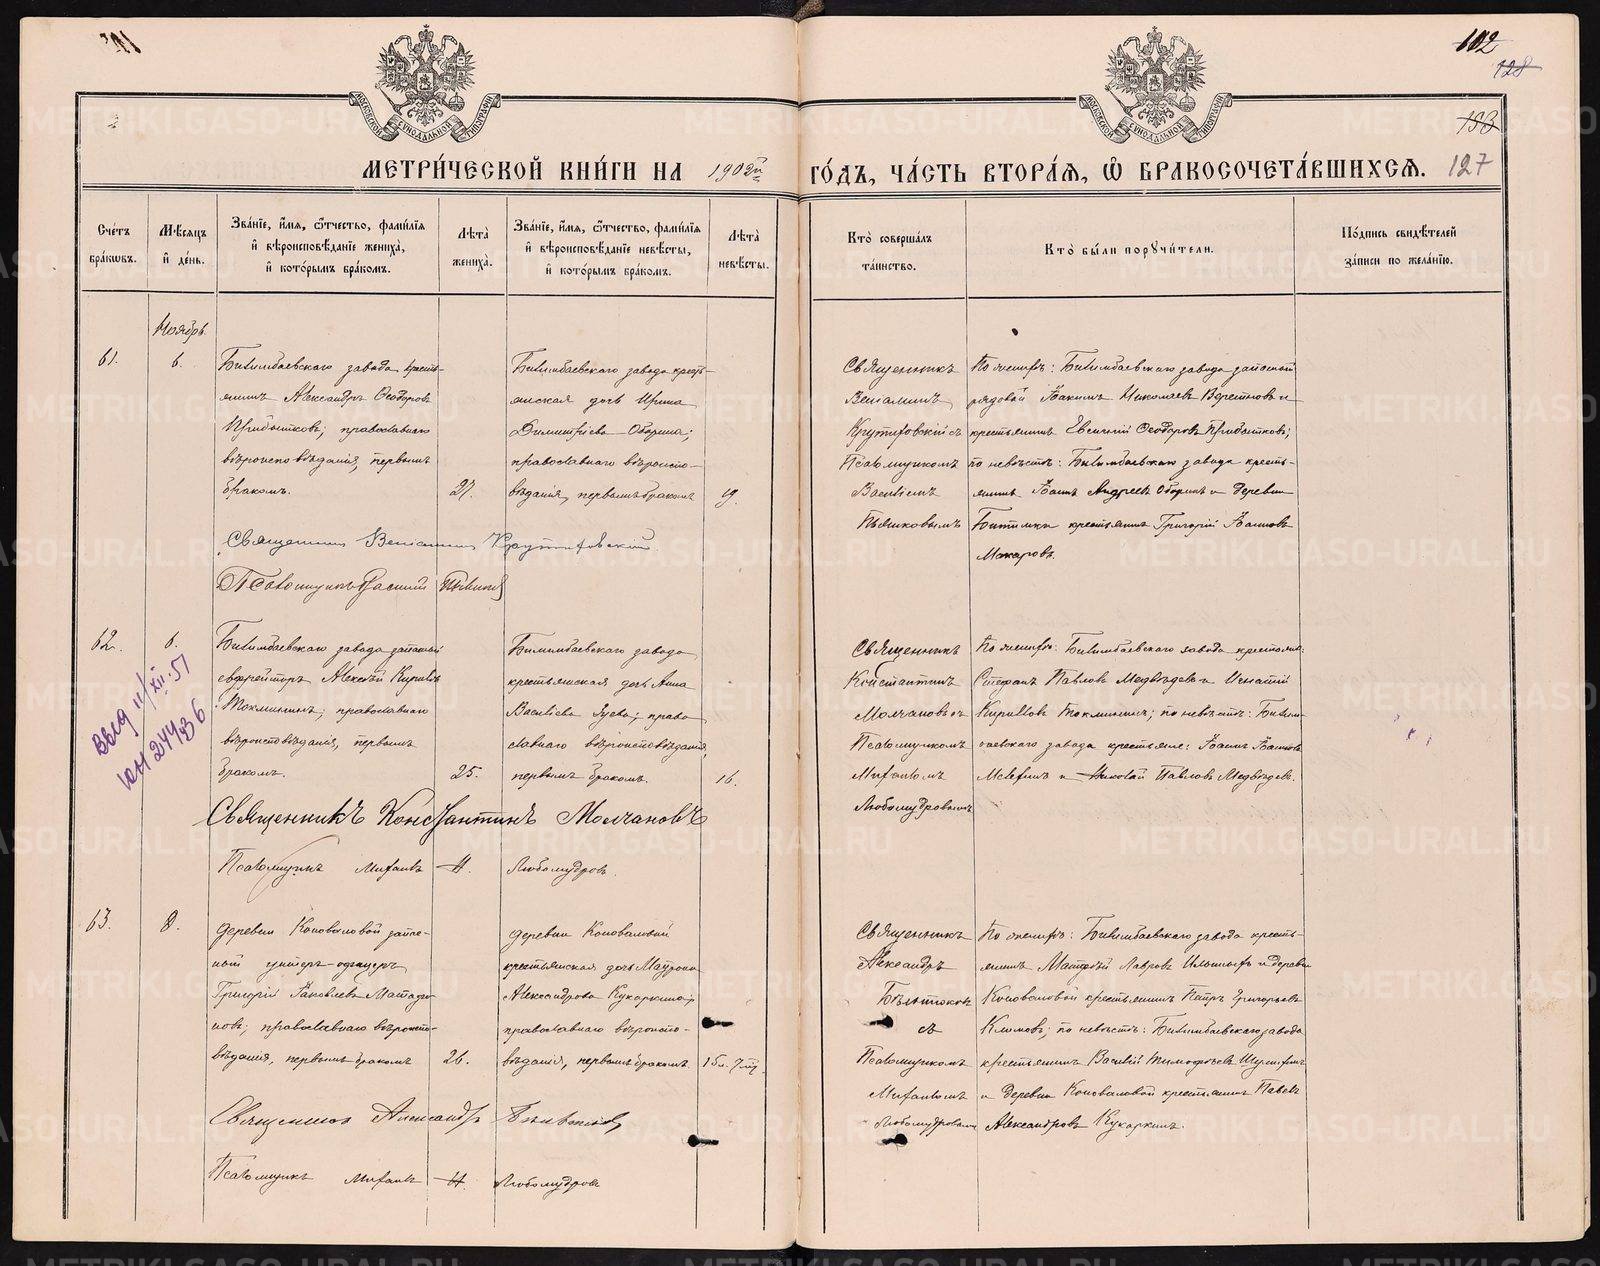 102
128
МОСКОВСКОЙ СѴНОДАЛЬНОЙ ТИПОГРАФІИ
МОСКОВСКОЙ СѴНОДАЛЬНОЙ ТИПОГРАФІИ
133
МЕТРИ́ЧЕСКОЙ КНИ́ГИ НА 1902й ГО́ДЪ, ЧА́СТЬ ВТОРА́Ѧ, Ѽ БРАКОСОЧЕТА́ВШИХСѦ. 127
Сче́тъ бра́кѡвъ.
Мѣ́сѧцъ и҆ де́нь.
Зва́нїе, и҆́мѧ, ѻ҆́тчество, фами́лїѧ и҆ вѣроисповѣ́данїе жениха̀, и҆ кото́рымъ бра́комъ.
Лѣта̀ жениха̀.
Зва́нїе, и҆́мѧ, ѻ҆́тчество, фами́лїѧ и҆ вѣроисповѣ́данїе невѣ́сты, и҆ кото́рымъ бра́комъ.
Лѣта̀ невѣ́сты.
Кто̀ соверша́лъ та́инство.
Кто̀ бы́ли порꙋчи́тели.
По́дпись свидѣ́телей за́писи по жела́нїю.
Ноябрь.
61.
6.
Билимбаевскаго завода кресть-
янинъ Александръ Ѳеодоровъ
Прибытковъ; православнаго
вѣроисповѣданія, первымъ
бракомъ.
27.
Билимбаевскаго завода кресть-
янская дочь Ирина
Димитріева Оборина;
православнаго вѣроиспо-
вѣданія, первымъ бракомъ
19.
Священникъ
Веніаминъ
Крутиховскій съ
Псаломщикомъ
Василіемъ
Пьянковымъ
По женихѣ: Билимбаевскаго завода запасный
рядовой Іоакимъ Николаевъ Веретновъ и
крестьянинъ Евгеній Ѳеодоровъ Прибытковъ;
по невѣстѣ: Билимбаевскаго завода кресть-
янинъ Іоаннъ Андреевъ Оборинъ и деревни
Битимки крестьянинъ Григорій Іоанновъ
Макаровъ.
Священникъ Веніаминъ Крутиховскій
Псаломщикъ Василій Пьянковъ
62.
6.
Билимбаевскаго завода запасный
ефрейторъ Алексѣй Кириловъ
Токмининъ; православнаго
вѣроисповѣданія, первымъ
бракомъ.
25.
Билимбаевскаго завода
крестьянская дочь Анна
Васильева Зуева; право-
славнаго вѣроисповѣданія,
первымъ бракомъ.
16.
Священникъ
Константинъ
Молчановъ съ
Псаломщикомъ
Михаиломъ
Любомудровымъ
По женихѣ: Билимбаевскаго завода крестьяне:
Стефанъ Павловъ Медвѣдевъ и Игнатій
Кирилловъ Токмининъ; по невѣстѣ: Билим-
баевскаго завода крестьяне: Іоаннъ Іоанновъ
и Николай Павловъ Медвѣдевъ.
Священникъ Константинъ Молчановъ
Псаломщикъ Михаилъ Н. Любомудровъ.
63.
8.
Деревни Коноваловой запас-
ный унтеръ-офицеръ
Григорій Іаковлевъ
православнаго вѣроиспо-
вѣданія, первымъ бракомъ
26.
деревни Коноваловой
крестьянская дочь Мавронія
Александрова Кукаркина;
православнаго вѣроиспо-
вѣданія, первымъ бракомъ.
15 л. 7 м.
Священникъ
Александръ
съ
Псаломщикомъ
Михаиломъ
Любомудровымъ
По женихѣ: Билимбаевскаго завода кресть-
янинъ Матѳей Лавровъ Ильиныхъ и деревни
Коноваловой крестьянинъ Петръ Григорьевъ
Климовъ; по невѣстѣ: Билимбаевскаго завода
крестьянинъ Василій Тимоѳеевъ
и деревни Коноваловой крестьянинъ Павелъ
Александровъ Кукаркинъ.
Священникъ Александръ
Псаломщикъ Михаилъ Н. Любомудровъ
METRIKI.GASO-URAL.RU